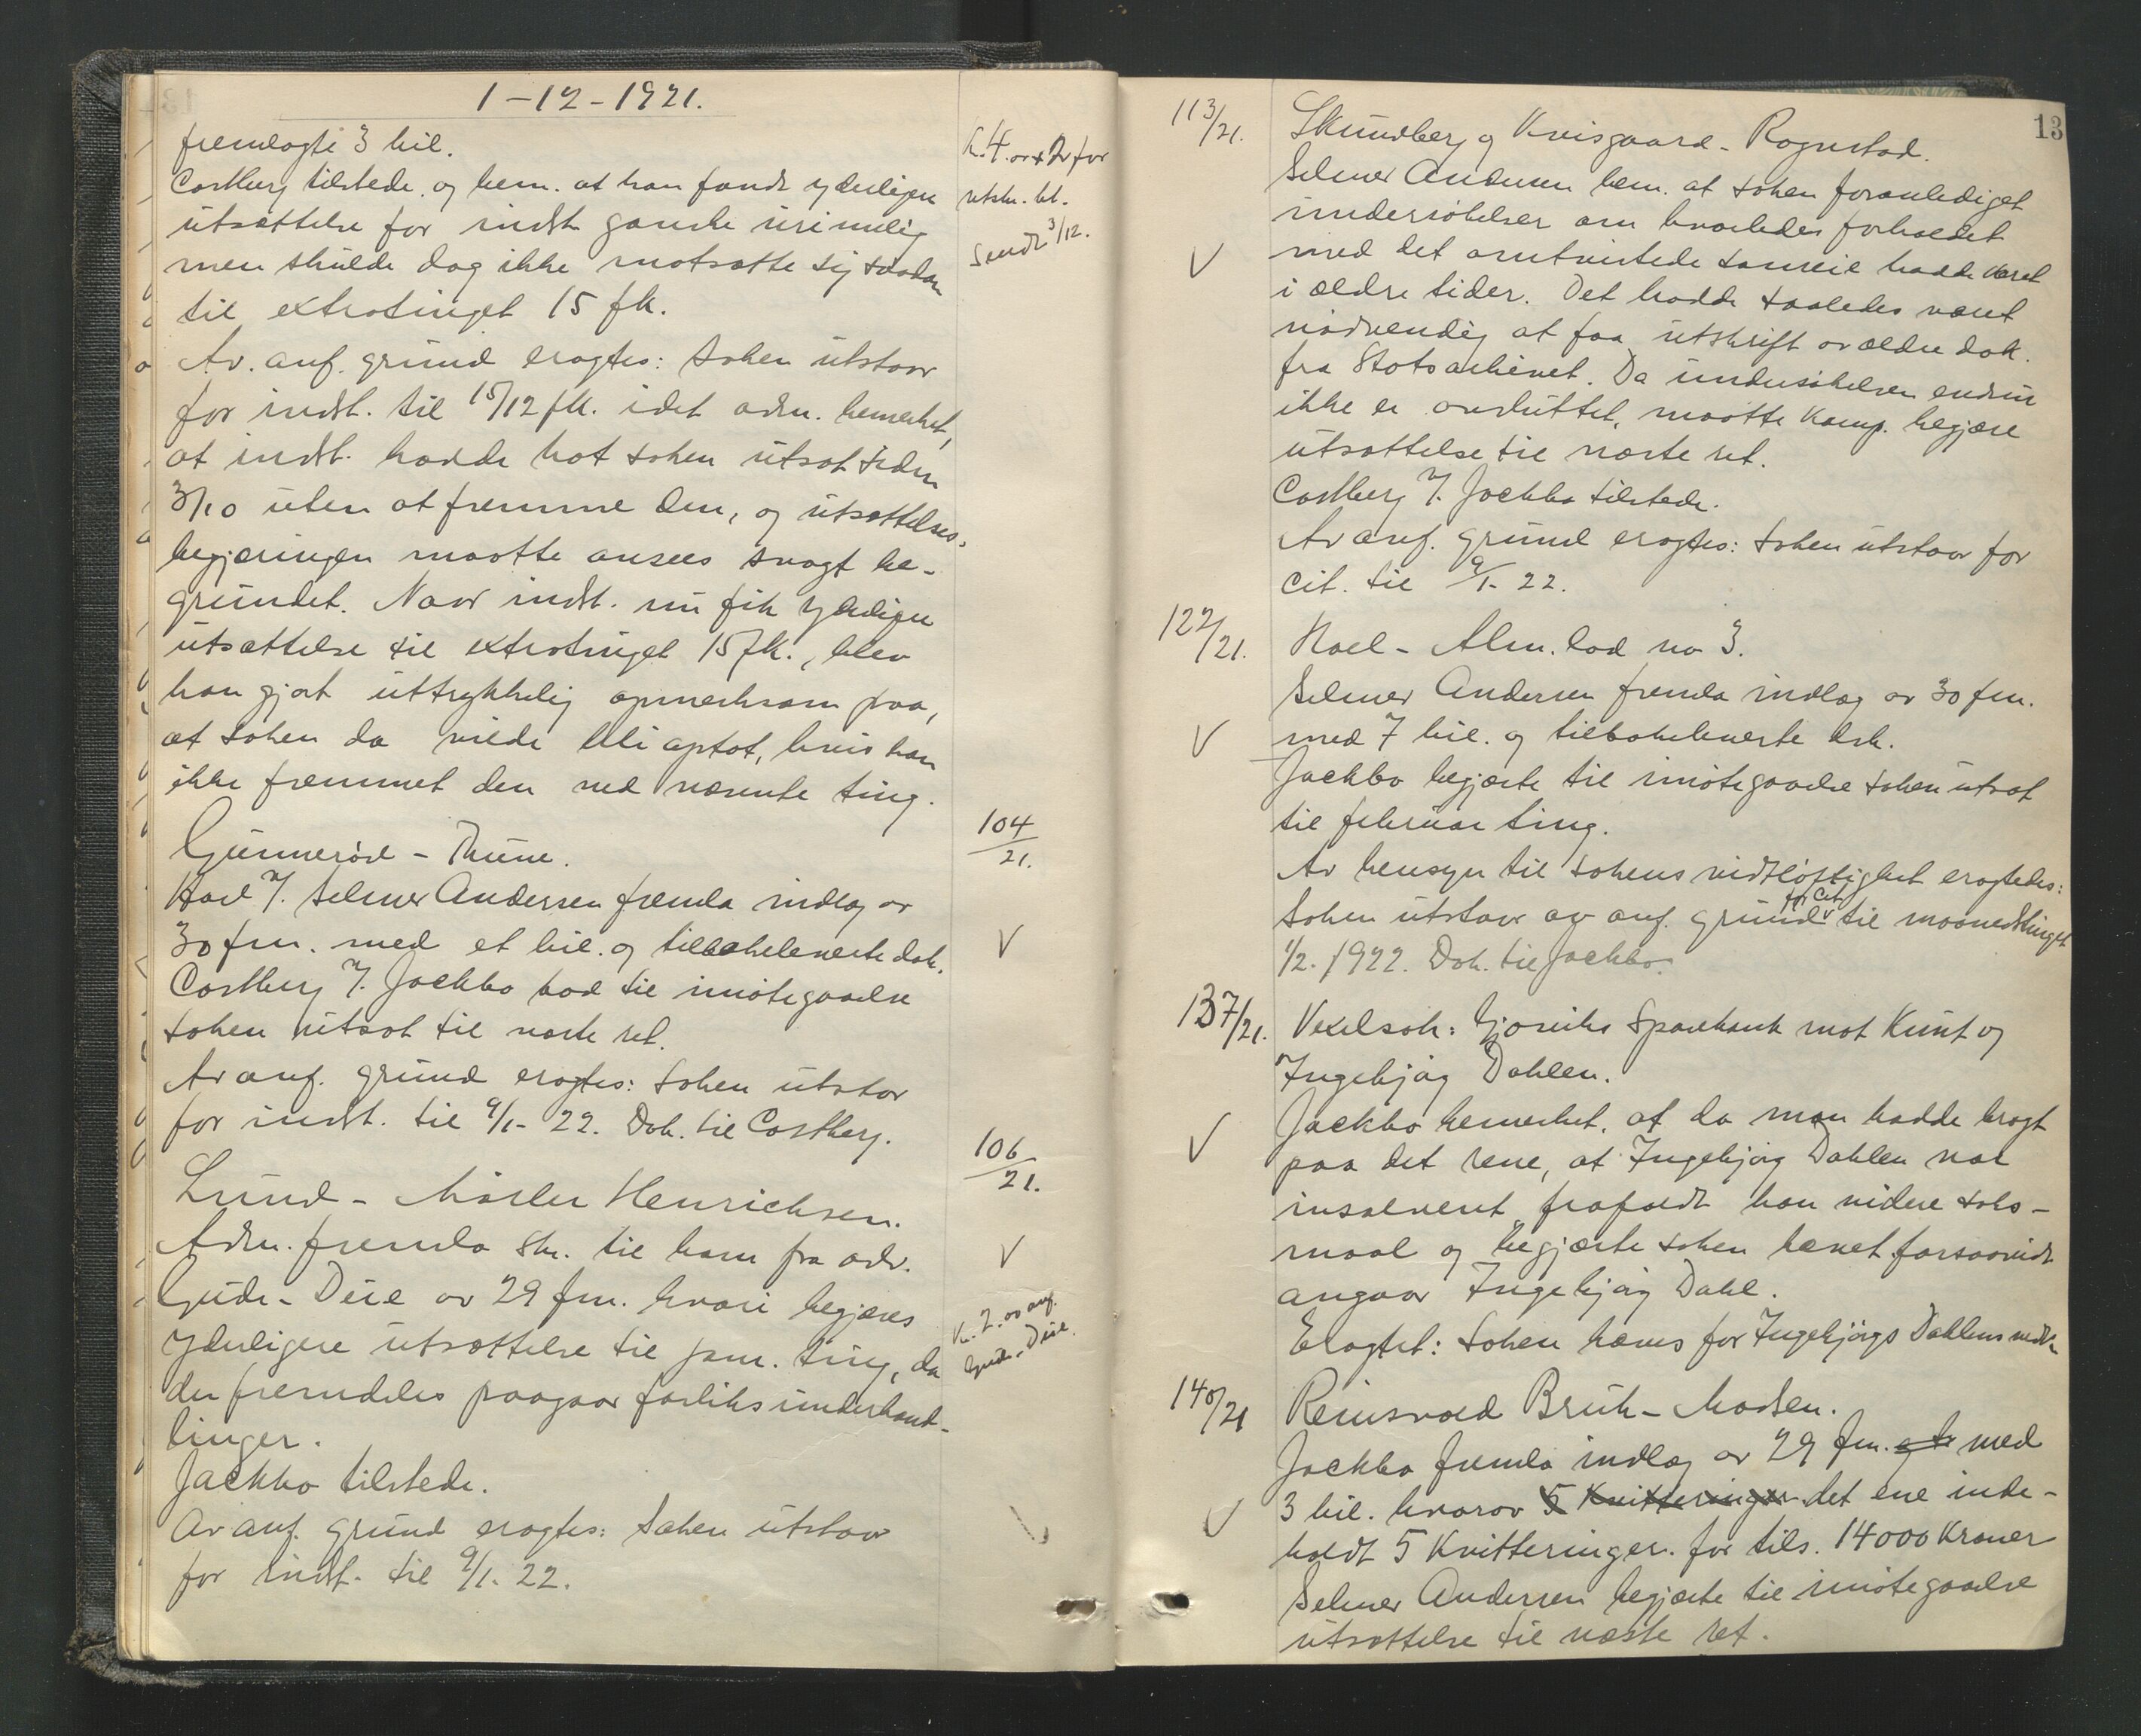 1-12-1921.
fremlagte 3 bil.
Castberg tilstede og bem. at han fandt yderligere
utsættelse for indst. ganske urimelig
men skulde dog ikke motsætte sig saadan
til extratinget 15 fk.
Av. anf. grund eragtes: Saken utstaar
for indst. til 15/12 fk. idet adm. bemerket,
at indst. hadde hat saken utsat siden
3/10 uten at fremme den, og utsættelses-
begjæringen maatte ansees svagt be-
grundet. Naar indst. nu fik yderligere
utsættelse til extratinget 15 fk., blev
han gjort uttrykkelig opmerksom paa,
at saken da vilde bli optat, hvis han
ikke fremmet den ved nævnte ting.
K. 4.00 + 2 for
utskr. bet.
Sendt 3/12.
104/21.
Gunnerød - Thune.
Hoel v. Selmer Andersen fremla indlæg av
30 fm. med et bil. og tilbakeleverte dok.
Castberg v. Jackbo bad til imøtegaaelse
saken utsat til næste ret.
Av anf. grund eragtes: Saken utstaar
for indst. til 9/1-22. Dok. til Castberg.
V
106/21.
Lund - Møller Henrichsen.
Adm. fremla skr. til ham fra adv.
Gude-Deie av 29 fm. hvori begjæres
yderligere utsættelse til jan. ting, da
der fremdeles paagaar forliksunderhand-
linger.
Jackbo tilstede.
Av anf. grund eragtes: Saken utstaar
for indst. til 9/1. 22.
V
K. 2.00 anf.
Gude-Deie.
13
113/21.
Skundberg og Kvisgaard - Rognstad.
Selmer Andersen bem. at saken foranlediget
undersøkelser om hvorledes forholdet
med det omtvistede sameie hadde været
i ældre tider. Det hadde saaledes været
nødvendig at faa utskrift av ældre dok.
fra Statsarkivet. Da undersøkelsen endnu
ikke er avsluttet, maatte komp. begjære
utsættelse til næste ret.
Castberg v. Jackbo tilstede.
Av anf. grund eragtes: Saken utstaar for
cit. til 9/1-22.
V
122/21.
Hoel - Alm. lod no 3.
Selmer Andersen fremla indlæg av 30 fm.
med 7 bil. og tilbakeleverte dok.
Jackbo begjærte til imøtegaaelse saken utsat
til februar ting.
Av hensyn til sakens vidtløftighet eragtedes:
Saken utstaar av anf. grund for cit. til maanedstinget
1/2. 1922. Dok. til Jackbo.
V
137/21.
Vexelsak: Gjøviks Sparebank mot Knut og
Ingebjørg Dahlen.
Jackbo bemerket, at da man hadde bragt
paa det rene, at Ingebjørg Dahlen var
insolvent, frafaldt han videre søks-
maal og begjærte saken hævet forsaavidt
angaar Ingebjørg Dahl.
Eragtet: Saken hæves for Ingebjørgs Dahlens vedk.
V
140/21
Reinsvold Bruk - Madsen.
Jackbo fremla indlæg av 29 fm. med
3 bil. hvorav 5 Kvitteringer det ene inde-
holdt 5 Kvitteringer for tils. 14000 Kroner
Selmer Andersen begjærte til imøtegaaelse
utsættelse til næste ret.
V